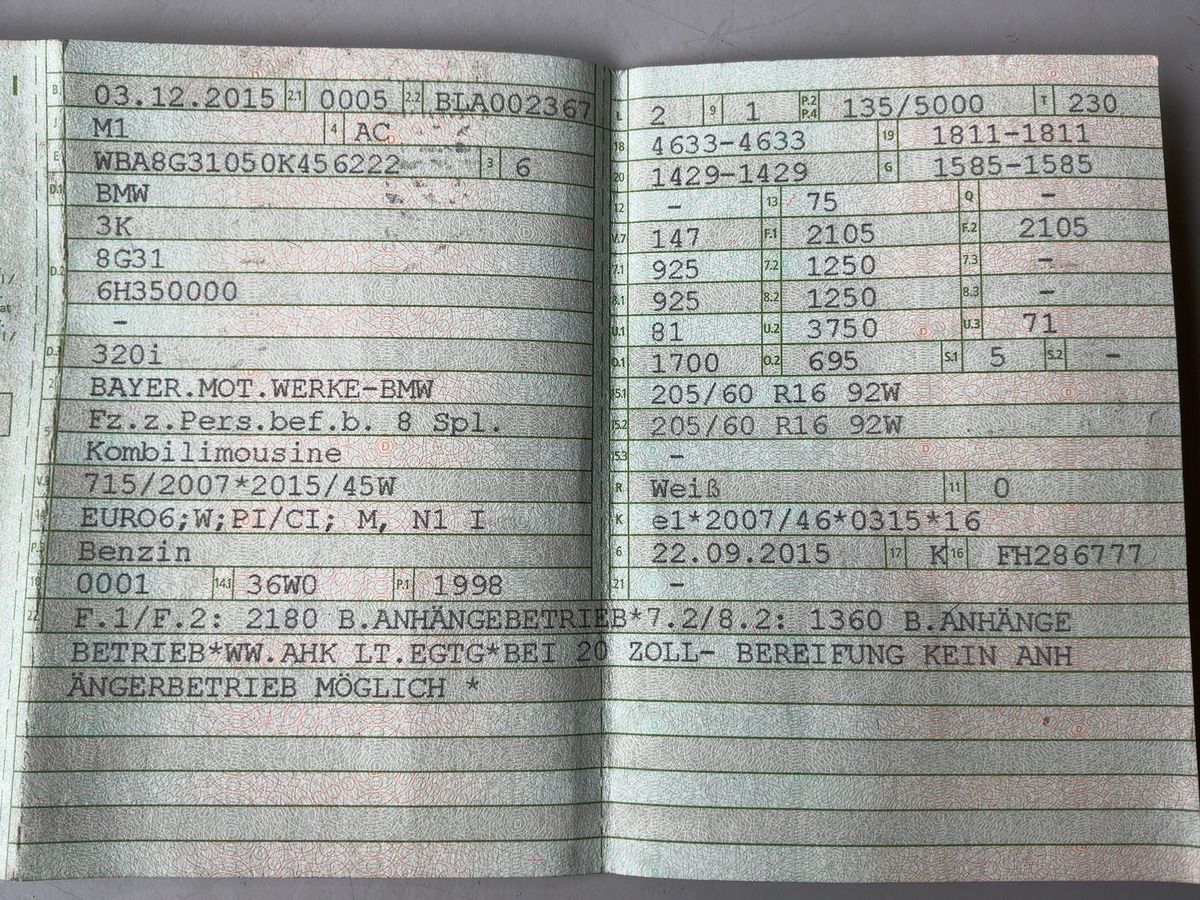 B 03.12.2015 2.1 0005 2.2 BLA002367
M1 4 AC
E WBA8G31050K456222 3 6
D.1 BMW
3K
8G31
D.2 6H350000
–
D.3 320i
2 BAYER.MOT.WERKE-BMW
5 Fz.z.Pers.bef.b. 8 Spl.
Kombilimousine
V.9 715/2007*2015/45W
EURO6;W;PI/CI; M, N1 I
P.3 Benzin
10 0001 14.1 36W0 P.1 1998
L 2 9 1 P.2 P.4 135/5000 T 230
18 4633-4633 19 1811-1811
20 1429-1429 G 1585-1585
12 – 13 75 Q –
V.7 147 F.1 2105 F.2 2105
7.1 925 7.2 1250 7.3 –
8.1 925 8.2 1250 8.3 –
U.1 81 U.2 3750 U.3 71
O.1 1700 O.2 695 S.1 5 S.2 –
15.1 205/60 R16 92W
15.2 205/60 R16 92W
15.3 –
R Weiß 11 0
K e1*2007/46*0315*16
6 22.09.2015 17 K 16 FH286777
21 –
22 F.1/F.2: 2180 B.ANHÄNGEBETRIEB*7.2/8.2: 1360 B.ANHÄNGE
BETRIEB*WW.AHK LT.EGTG*BEI 20 ZOLL- BEREIFUNG KEIN ANH
ÄNGERBETRIEB MÖGLICH *